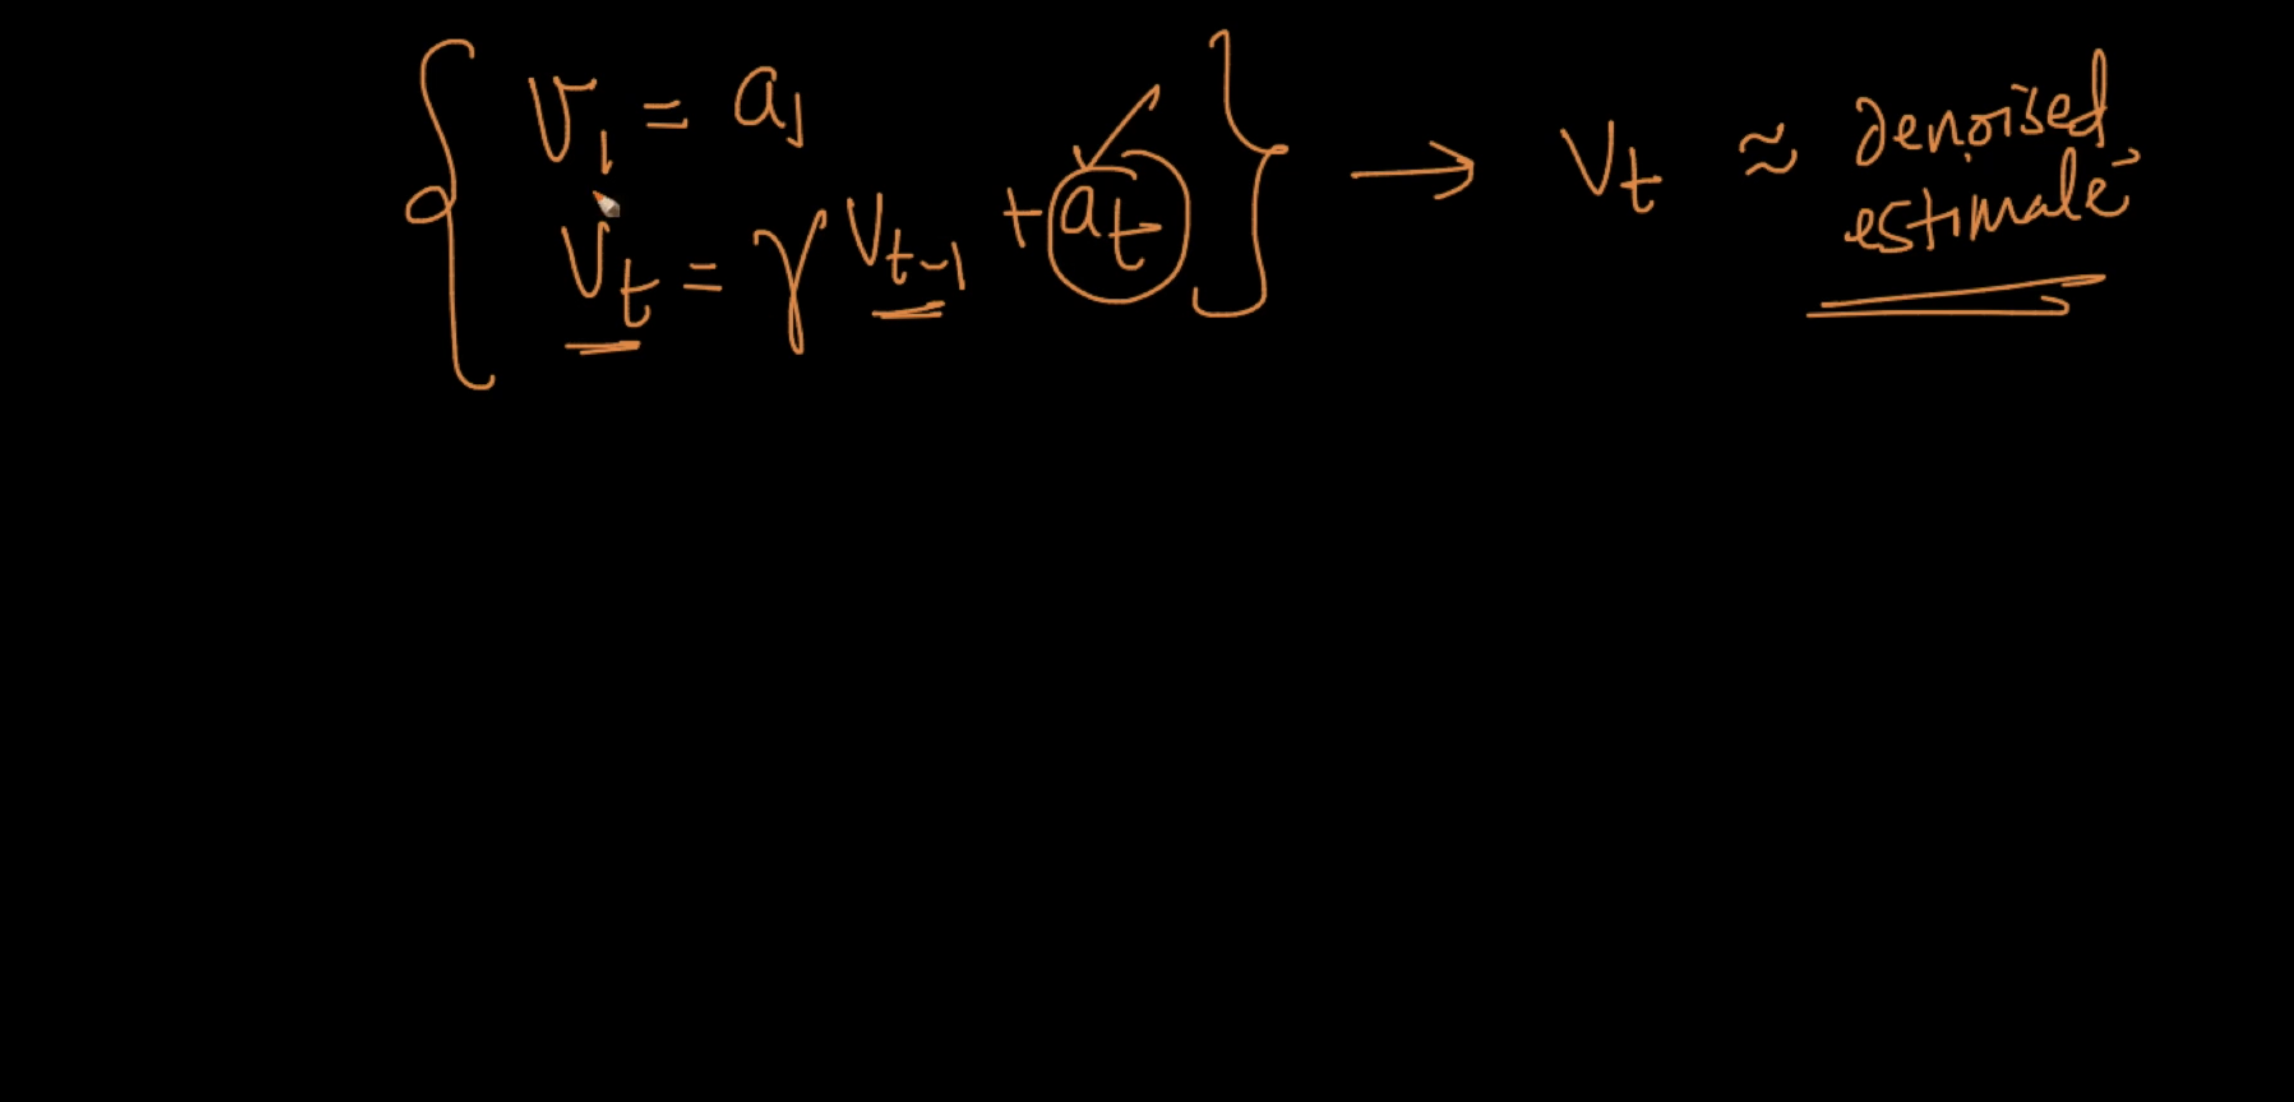 v₁ = a₁
v_t = γ v_{t-1} + a_t → v_t ≈ denoised
estimate